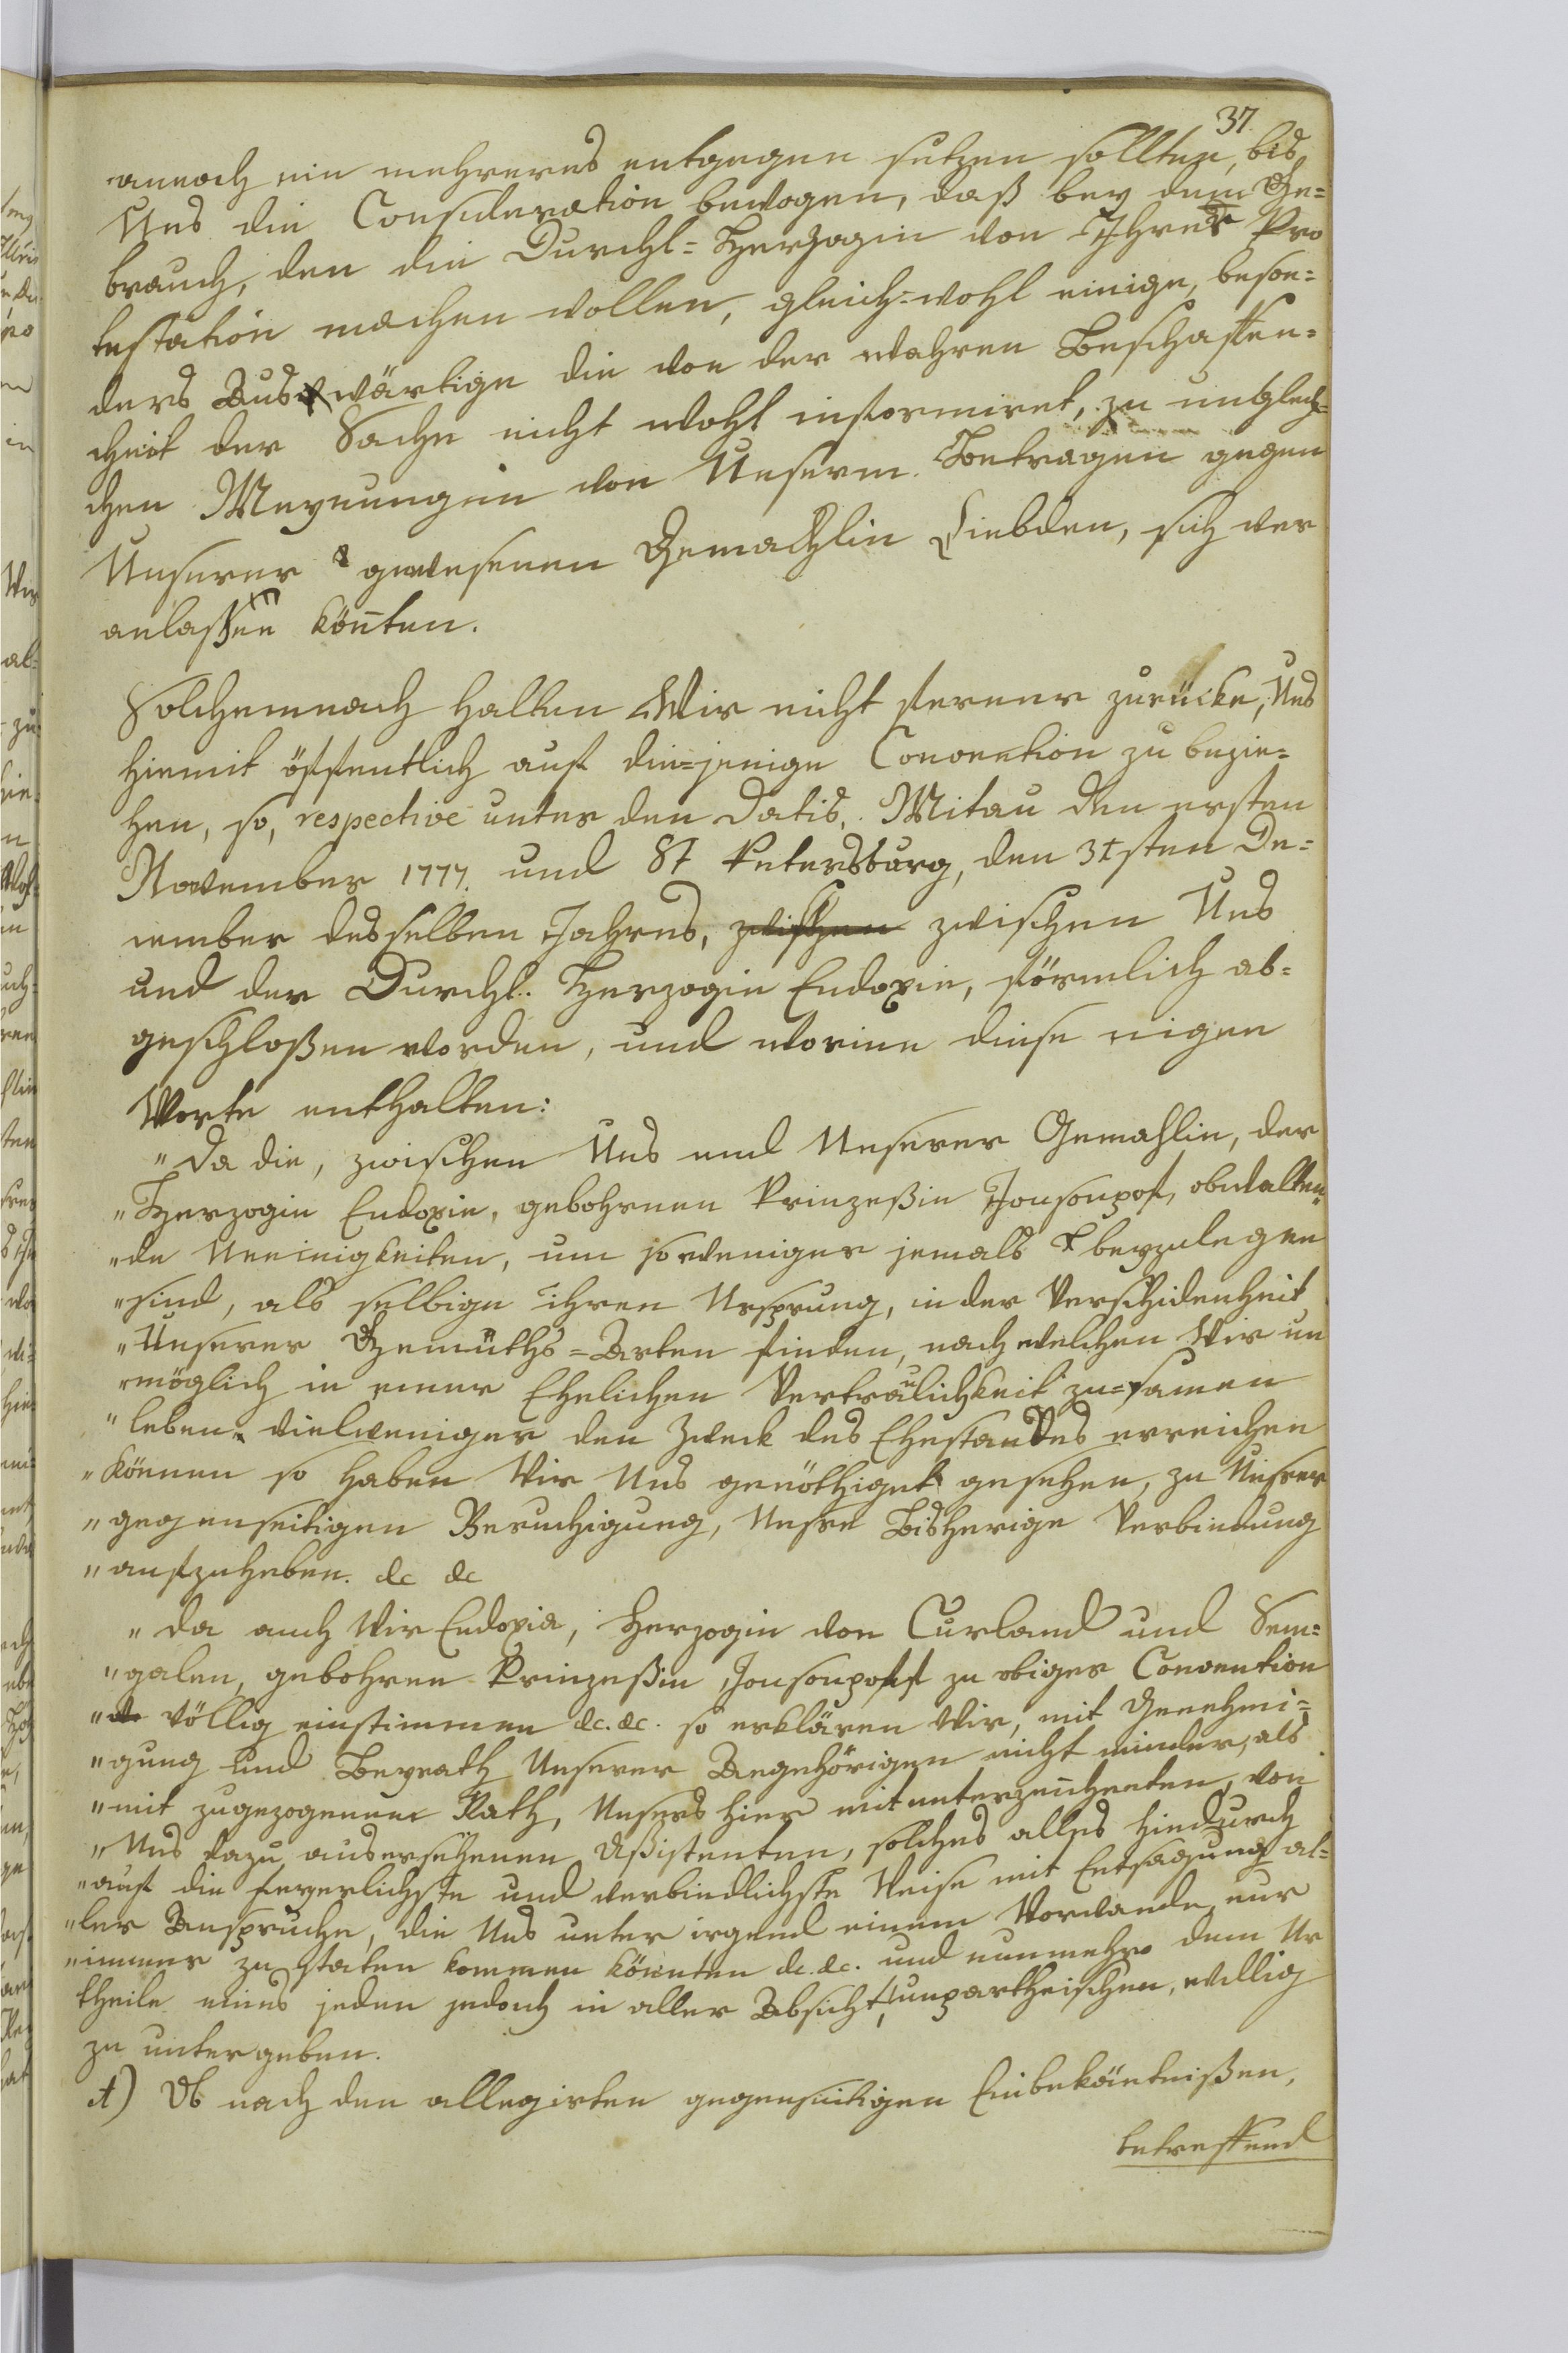 37.
annoch ein mehreres entgegen setzen sollten, bis
Uns die Consideration bewogen, daß bey dem Ge=
brauch, den die Durchl= Herzogin von Ihrer Pro
testation machen wollen, gleich=wohl einige, beson=
ders Auswärtige die von der wahren Beschaffen=
cheit der Sache nicht wohl informiret, zu ungleich=
chen Meynungen von Unserm Betragen gegen
Unserer gewesenen Gemachlin Liebden, sich ver
anlaßen könten.
Solchemnach halten Wir nicht ferner zurücke, Uns
hiemit öffentlich auf die=jenige Convention zu bezie=
hen, so, respective unter den Datis, Mitau den ersten
November 1777. und St Petersburg, den 31sten De=
cember desselben Jahres, zwischen zwischen Uns
und der Durchl. Herzogin Eudoxie, förmlich ab=
geschloßen worden, und worinn diese eigen
Worte enthalten:
"Da die, zwischen Uns und Unserer Gemahlin, der
"Herzogin Eudoxie, gebohrnen Prinzeßin Jousoupof, obwalten
"de Uneinigkeiten, um so weniger jemals beyzulegen
"sind, als selbige ihren Ursprung, in der Verschidenheit
"Unserer Gemüths=Arten finden, nach welchen Wir un
"möglich in einer Ehelichen Vertraulichkeit zu=samen
"leben, vielweniger den Zweck des Ehestandes erreichen
"können so haben Wir Uns genöthiget gesehen, zu Unsrer
"gegenseitigen Beruchigung, Unsre Bisherige Verbindung
"aufzuheben. &c &c
"da auch Wir Eudoxia, Herzogin von Curland und Sem=
"galen, gebohrne Prinzeßin Jousoupoff zu obiger Convention
" völlig einstimmen &c. &c. so erklären Wir, mit Genehmi=
"gung und Beyrath Unserer Angehörigen nicht minder, als
"mit zugezogenem Rath, Unsers hier mitunterzeichneten, von
"Uns dazu ausersehenen Aßistenten, solches alles hiedurch
"auf die feyerlichste und verbindlichste Weise mit Entsagung al=
"ler Anspruche, die Uns unter irgend einem Vorwande nur
"immer zu staten kommen könnten &c. &c. und nunmehro dem Ur
theile eines jeden jedoch in aller Absicht, unpartheischen, willig
zu untergeben.
A) Ob nach den allegirten gegenseitigen Einbekäntnißen,
betreffend